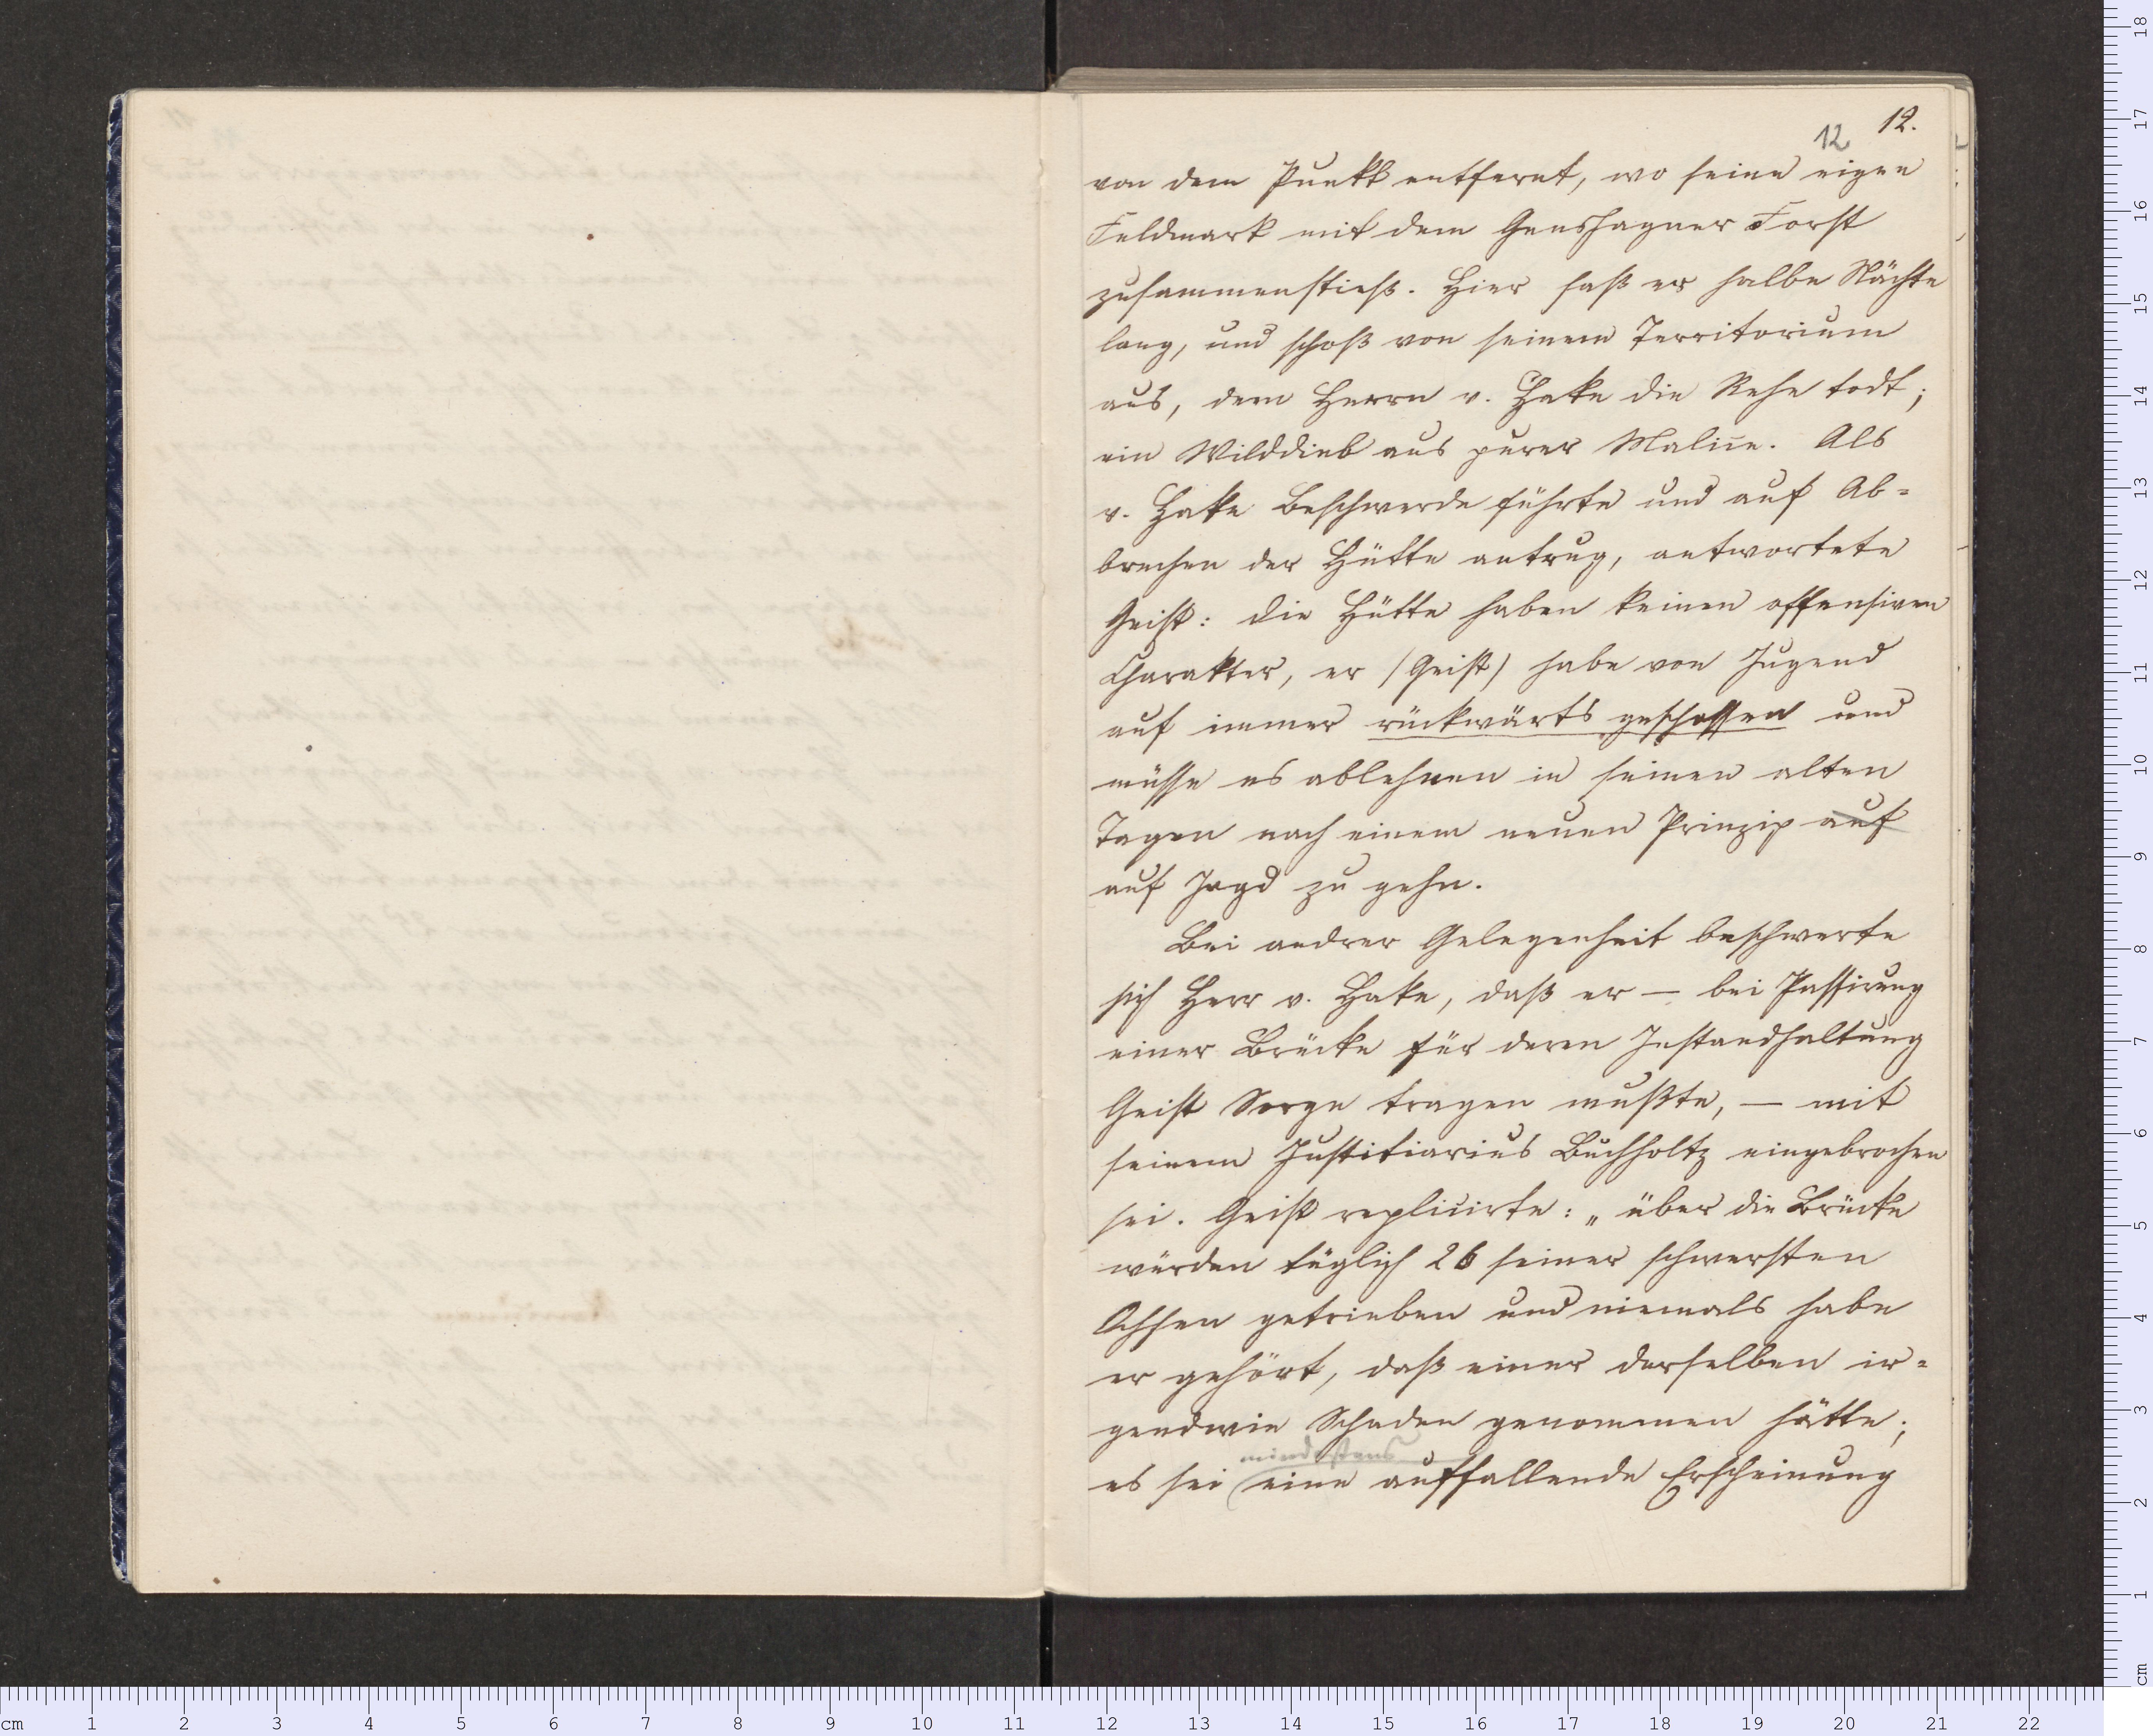 12.
12
von dem Punkt entfernt, wo seine eigen
Feldmark mit dem Genshagner Forst
zusammenstieß. Hier saß er halbe Nächte
lang, und schoß von seinem Territorium
aus, dem Herrn v. Hake die Rehe todt;
ein Wilddieb aus purer Malice. Als
v. Hake Beschwerde führte und auf Ab-
brechen der Hütte antrug, antwortete
Geist: die Hütte haben keinen offensiven
Charakter, er (Geist) habe von Jugend
auf immer rückwärts geschossen und
müsse es ablehnen in seinen alten
Tagen nach einem neuen Prinzip auf
auf Jagd zu gehn.
Bei andrer Gelegenheit beschwerte
sich Herr v. Hake, daß er — bei Passirung
einer Brücke für deren Instandhaltung
Geist Sorge tragen mußte, — mit
seinem Justitiarius Buchholtz eingebrochen
sei. Geist replicirte: „über die Brücke
würden täglich 26 seiner schwersten
Ochsen getrieben und niemals habe
er gehört, daß einer derselben ir-
gendwie Schaden genommen hätte;
mindestens
es sei eine auffallende Erscheinung